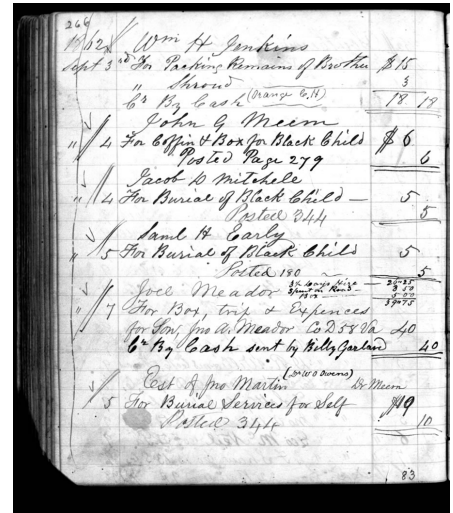 266
1862 Wm H Jenkins
Sept 3rd For Packing Remains of Brother $15
" Shroud 3
Cr By Cash (Orange C.H) 18 18
John G Meem
" 4 For Coffin & Box for Black Child $6
Posted Page 279 6
Jacob D Mitchele
" 4 For Burial of Black Child — 5
Posted 344 5
Saml H Early
" 5 For Burial of Black Child 5
Posted 180 ~ 5
Joel Meador 3½ days Hire —
" 7 For Box, trip & Expences
for Son, Jno A. Meador Co D 58 Va 40
Cr By Cash sent by Billy Garland 40
Est of Jno Martin (Dr W O Owens) Dr Meem
" 5 For Burial Services for Self
Posted 344 10
83